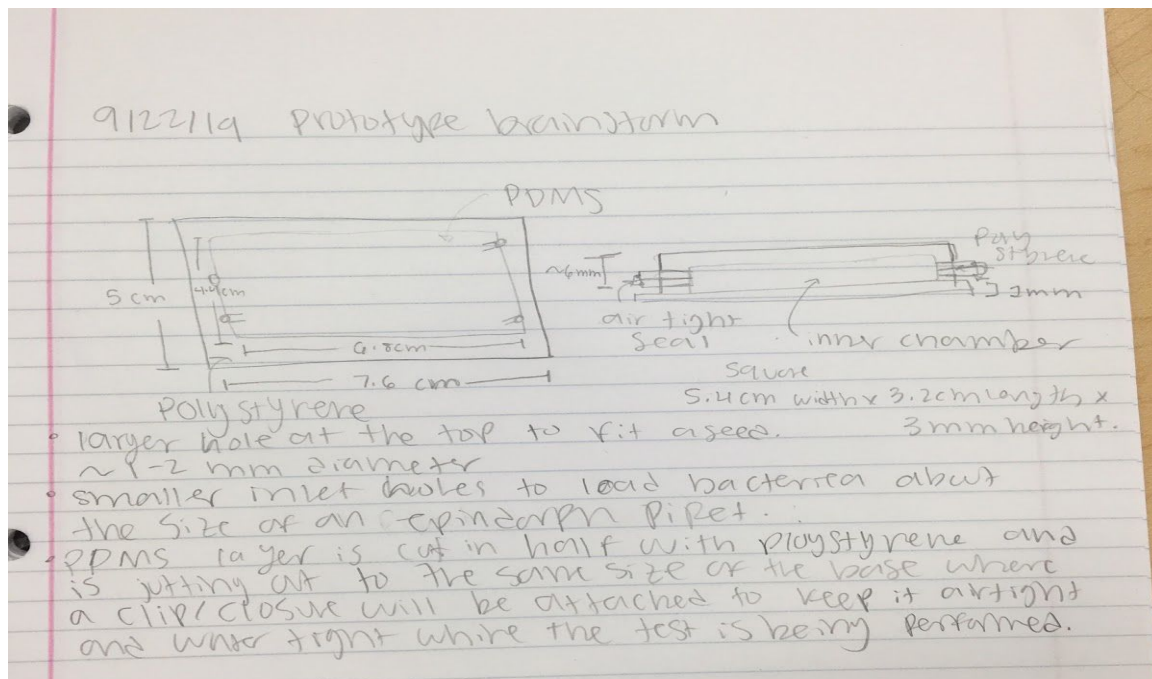 9/22/19 Prototype brainstorm
PDMS
5 cm
4.4cm
6.8cm
7.6 cm
Polystyrene
~6mm
Poly
styrene
1mm
air tight
seal
inner chamber
square
5.4cm width x 3.2cm length x
3mm height.
• larger hole at the top to fit a seed.
~1-2 mm diameter
• smaller inlet holes to load bacterea abut
the size of an epindorph pipet.
• PDMS layer is cut in half with ploystyrene and
is jutting out to the same size of the base where
a clip/closure will be attached to keep it airtight
and water tight while the test is being performed.